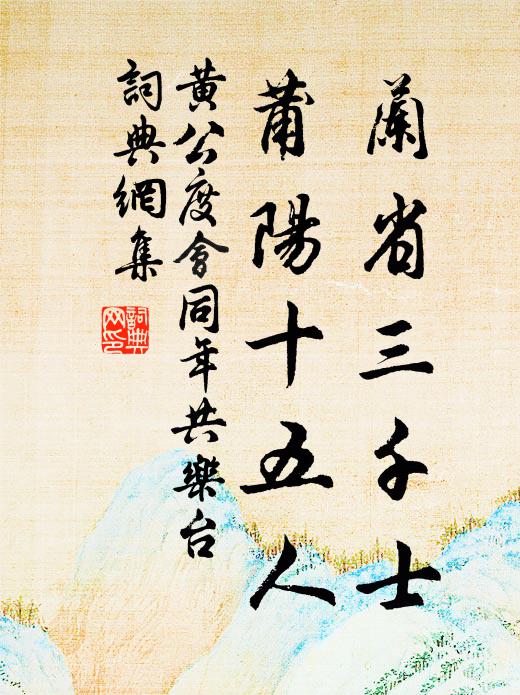 蘭省三千士
莆陽十五人
黄公度會同年共樂台
詞典網集
詞典
网印